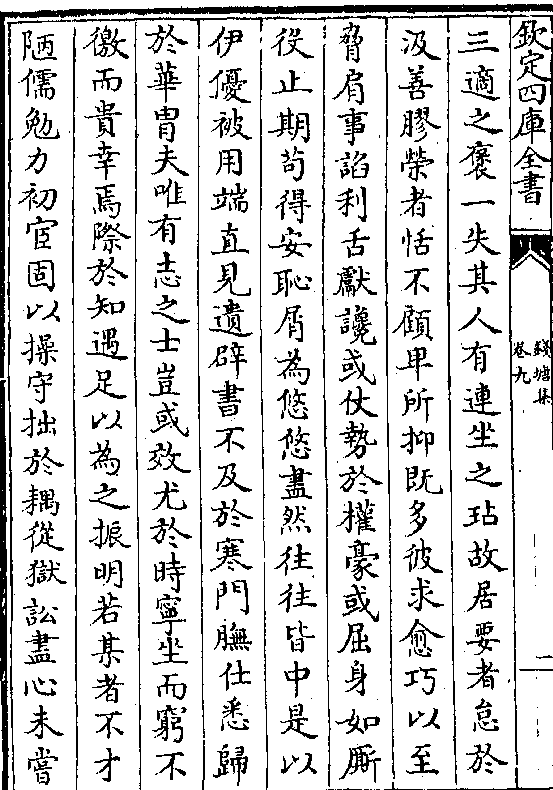 欽定四庫全書
錢塘集
卷九
一
三適之褒一失其人有連坐之玷故居要者怠於
汲善膠榮者恬不顧卑所抑既多彼求愈巧以至
脅肩事諂利舌獻讒或仗勢於權豪或屈身如厮
役止期苟得安恥屑為悠悠盡然往往皆中是以
伊優被用端直見遺辟書不及於寒門膴仕悉歸
於華胄夫唯有志之士豈或效尤於時寧坐而窮不
徼而貴幸焉際於知遇足以為之振明若某者不才
陋儒勉力初宦固以操守拙於耦從獄訟盡心未嘗